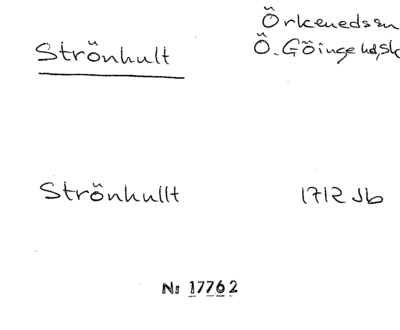 Strönhult
Örkeneds sn
Ö. Göinge hd, Sk
Strönhullt 1712 Jb
No 17762